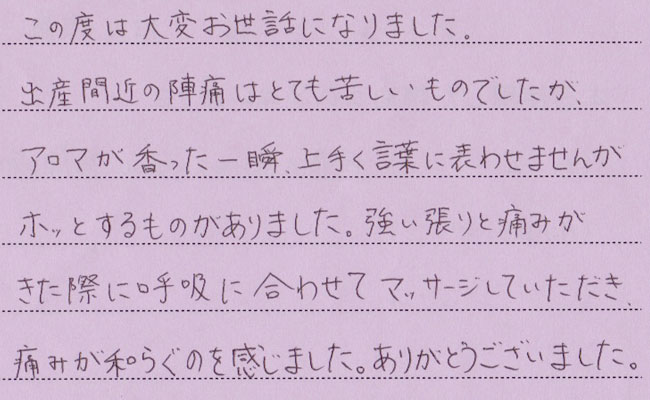 この度は大変お世話になりました。
出産間近の陣痛はとても苦しいものでしたが、
アロマが香った一瞬、上手く言葉に表わせませんが
ホッとするものがありました。強い張りと痛みが
きた際に呼吸に合わせてマッサージしていただき、
痛みが和らぐのを感じました。ありがとうございました。